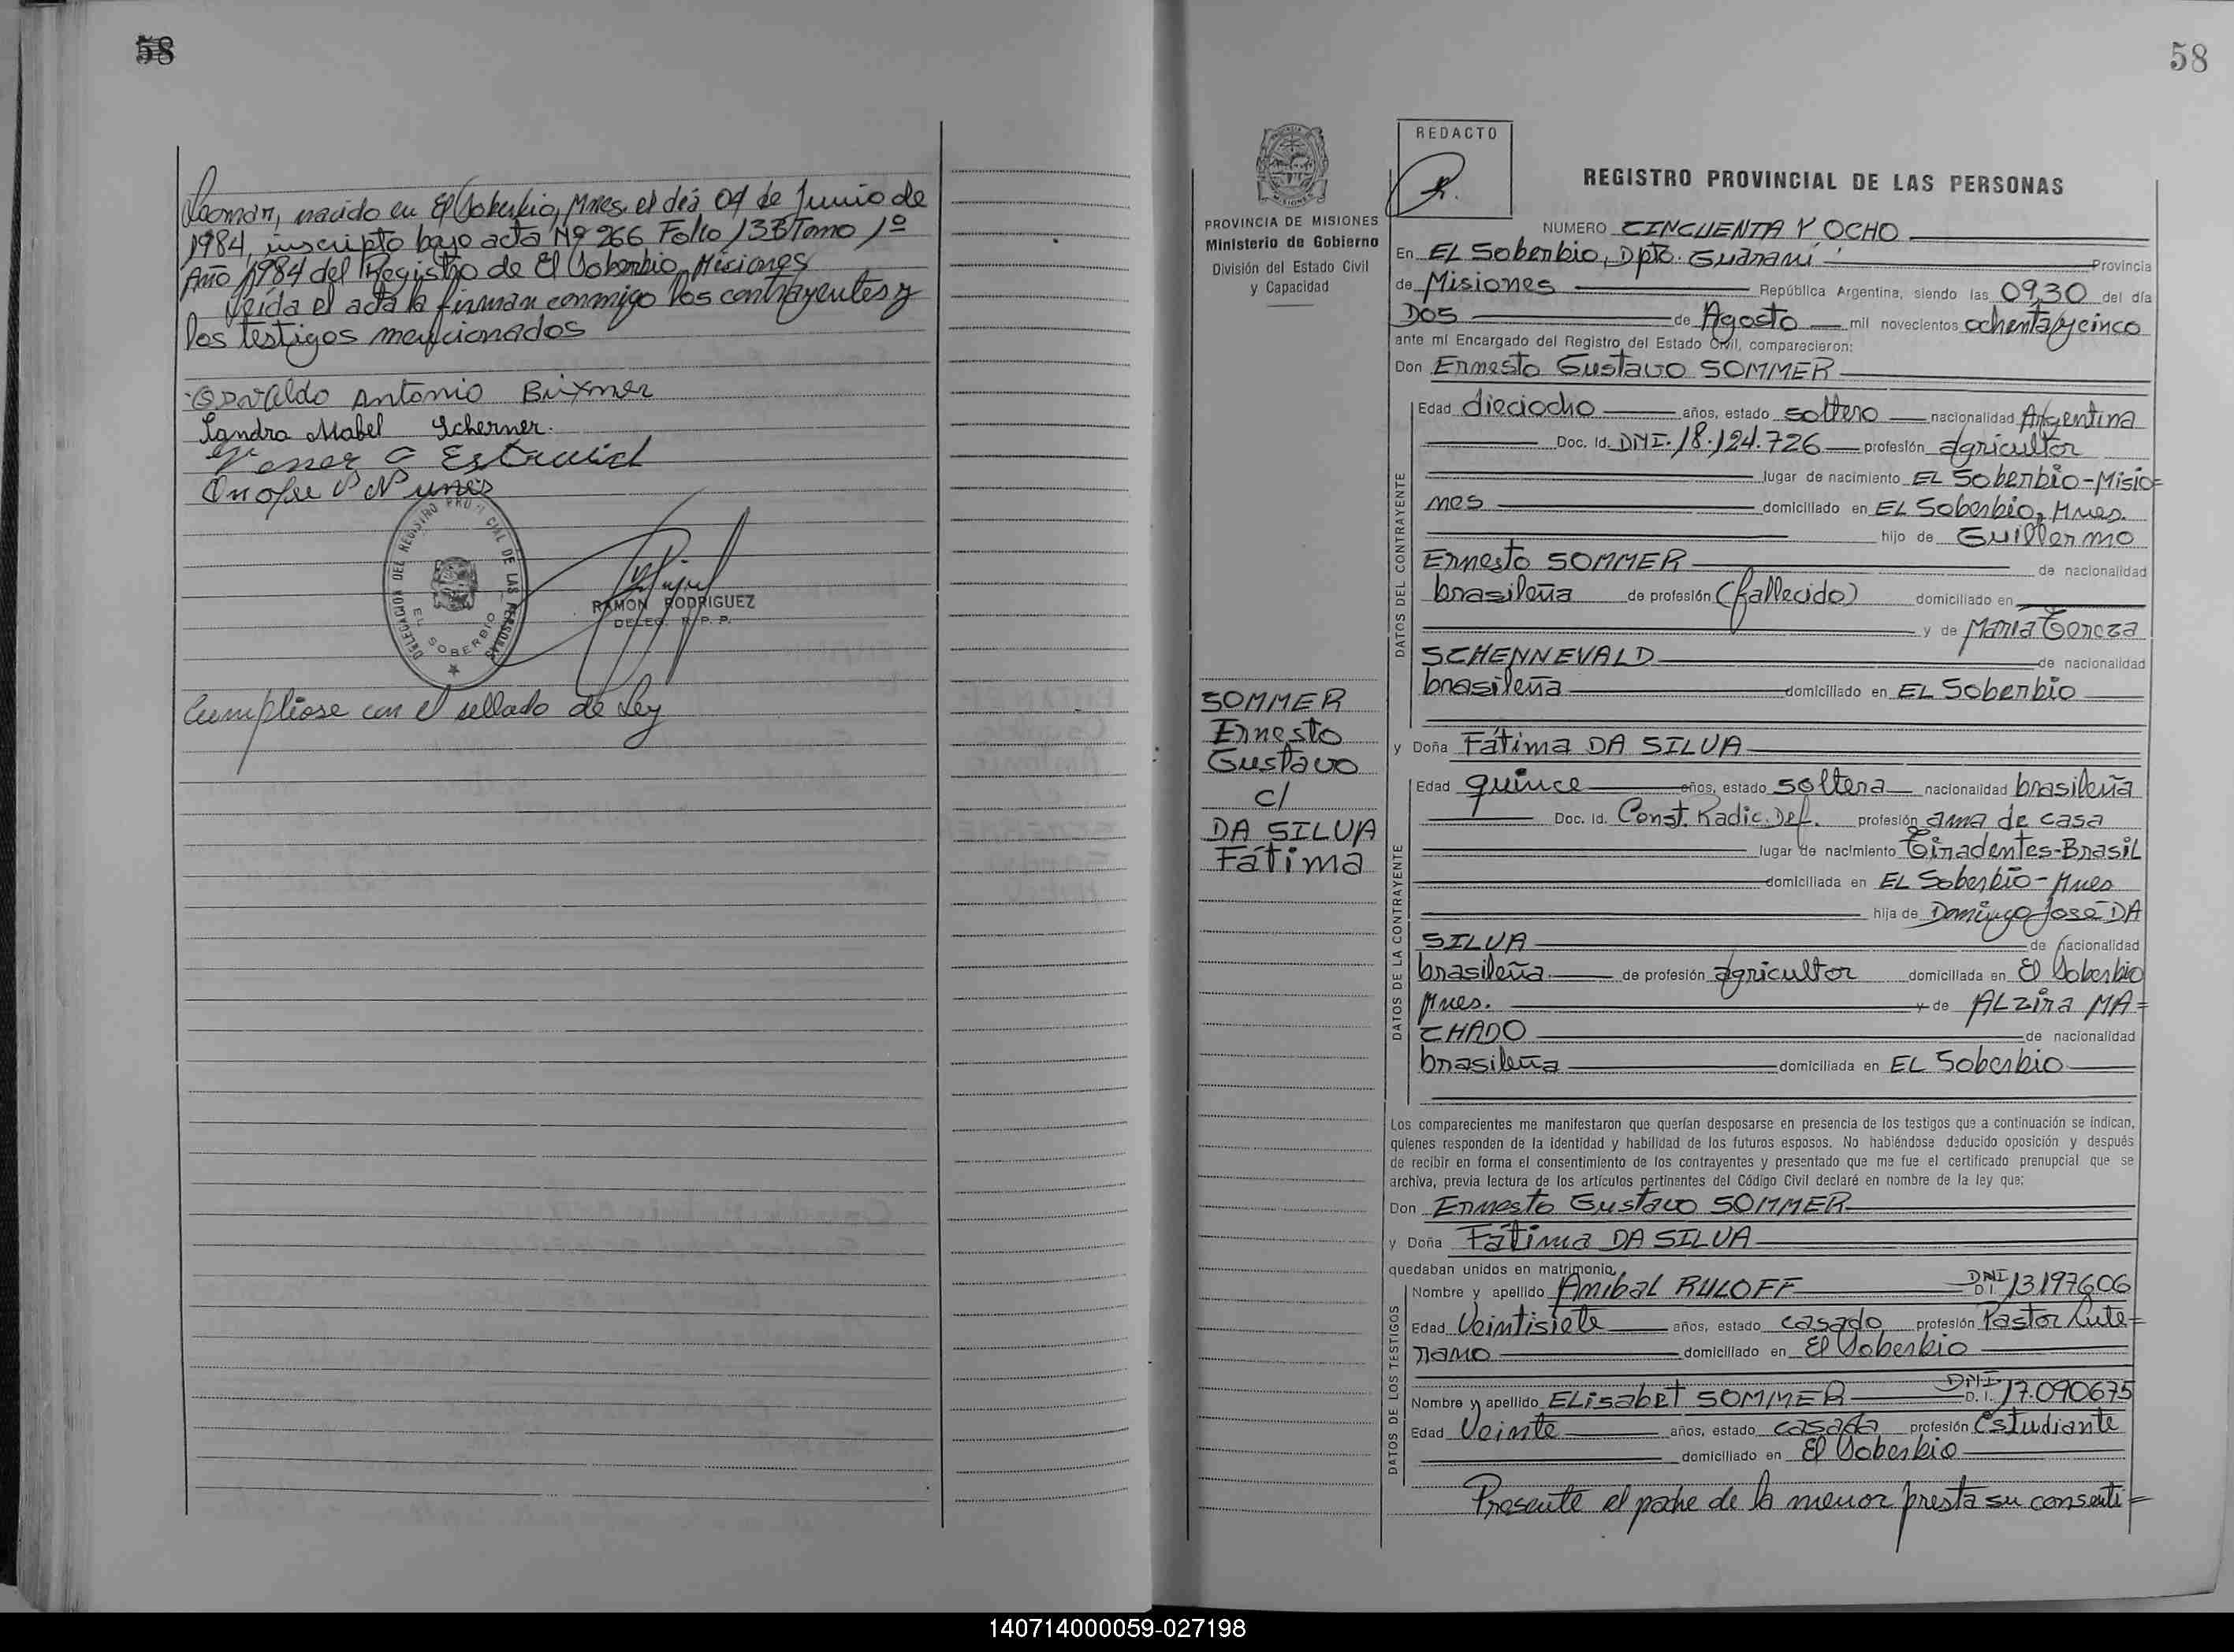 58
Leomar, nacido en El Soberbio, Mnes. el día 04 de Junio de
1984, inscripto bajo acta Nº 266 Folio 133 Tomo 1º
Año 1984 del Registro de El Soberbio, Misiones
Leída el acta la firman conmigo los contrayentes y
los testigos mencionados
Osvaldo Antonio Bixner
Sandra Mabel Scherner.
Onofre Nunes
DELEGACION DEL REGISTRO PROVINCIAL DE LAS PERSONAS
EL SOBERBIO
RAMON RODRIGUEZ
DELEG. R. P. P.
Cumpliose con el sellado de Ley
58
PROVINCIA DE MISIONES
Ministerio de Gobierno
División del Estado Civil
y Capacidad
SOMMER
Ernesto
Gustavo
c/
DA SILVA
Fátima
REDACTO
REGISTRO PROVINCIAL DE LAS PERSONAS
NUMERO CINCUENTA Y OCHO
En EL Soberbio, Dpto. Guaraní Provincia
de Misiones República Argentina, siendo las 09,30 del día
DOS de Agosto mil novecientos ochenta y cinco
ante mí Encargado del Registro del Estado Civil, comparecieron:
Don Ernesto Gustavo SOMMER
DATOS DEL CONTRAYENTE
Edad dieciocho años, estado soltero nacionalidad Argentina
Doc. Id. DNI. 18.124.726 profesión agricultor
lugar de nacimiento EL Soberbio-Misio=
nes domiciliado en EL Soberbio, Mnes.
hijo de Guillermo
Ernesto SOMMER de nacionalidad
brasileña de profesión (fallecido) domiciliado en
y de Maria Tereza
SCHENNEVALD de nacionalidad
brasileña domiciliado en EL Soberbio
y Doña Fátima DA SILVA
DATOS DE LA CONTRAYENTE
Edad quince años, estado soltera nacionalidad brasileña
Doc. Id. Const. Radic. Def. profesión ama de casa
lugar de nacimiento Tiradentes-Brasil
domiciliada en EL Soberbio-Mnes
hija de Domingo José DA
SILVA de nacionalidad
brasileña de profesión agricultor domiciliada en El Soberbio
Mnes. y de ALzira MA=
CHADO de nacionalidad
brasileña domiciliada en EL Soberbio
Los comparecientes me manifestaron que querían desposarse en presencia de los testigos que a continuación se indican,
quienes responden de la identidad y habilidad de los futuros esposos. No habiéndose deducido oposición y después
de recibir en forma el consentimiento de los contrayentes y presentado que me fue el certificado prenupcial que se
archiva, previa lectura de los artículos pertinentes del Código Civil declaré en nombre de la ley que:
Don Ernesto Gustavo SOMMER
y Doña Fátima DA SILVA
quedaban unidos en matrimonio.
DATOS DE LOS TESTIGOS
Nombre y apellido Anibal RULOFF DNI D.I. 13197606
Edad Veintisiete años, estado casado profesión Pastor Lute=
rano domiciliado en El Soberbio
Nombre y apellido ELisabet SOMMER DNI D.I. 17.090675
Edad Veinte años, estado casada profesión Estudiante
domiciliado en El Soberbio
Presente el padre de la menor presta su consenti=
140714000059-027198